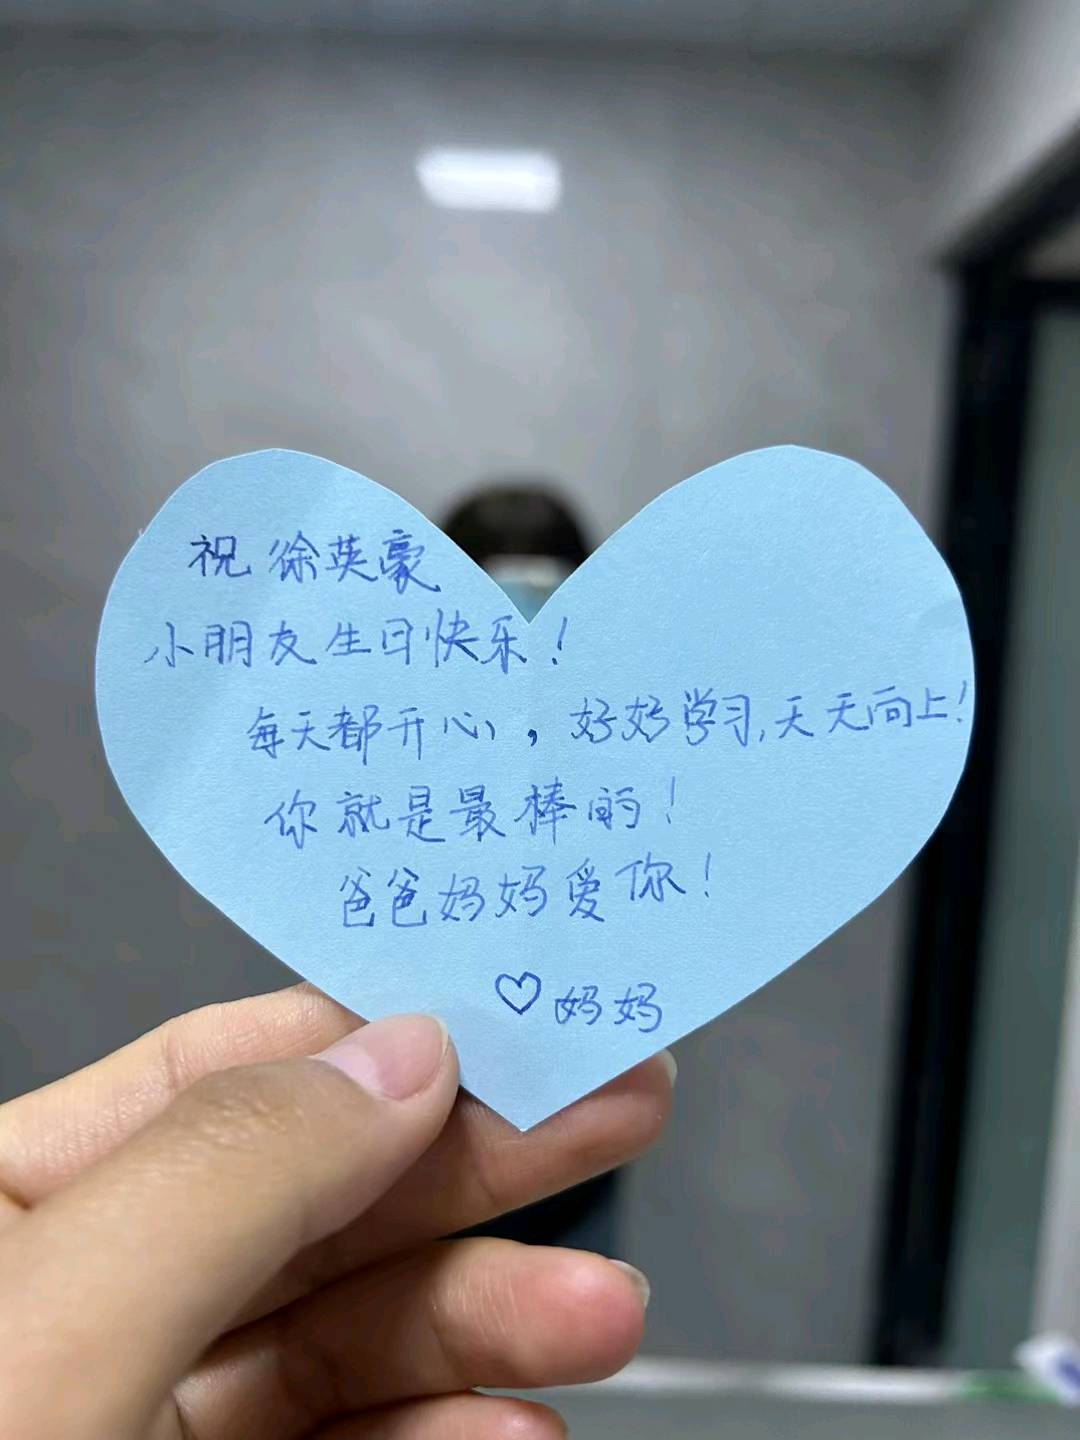 祝 徐英豪
小朋友生日快乐！
每天都开心，好好学习,天天向上！
你就是最棒的！
爸爸妈妈爱你！
♡妈妈